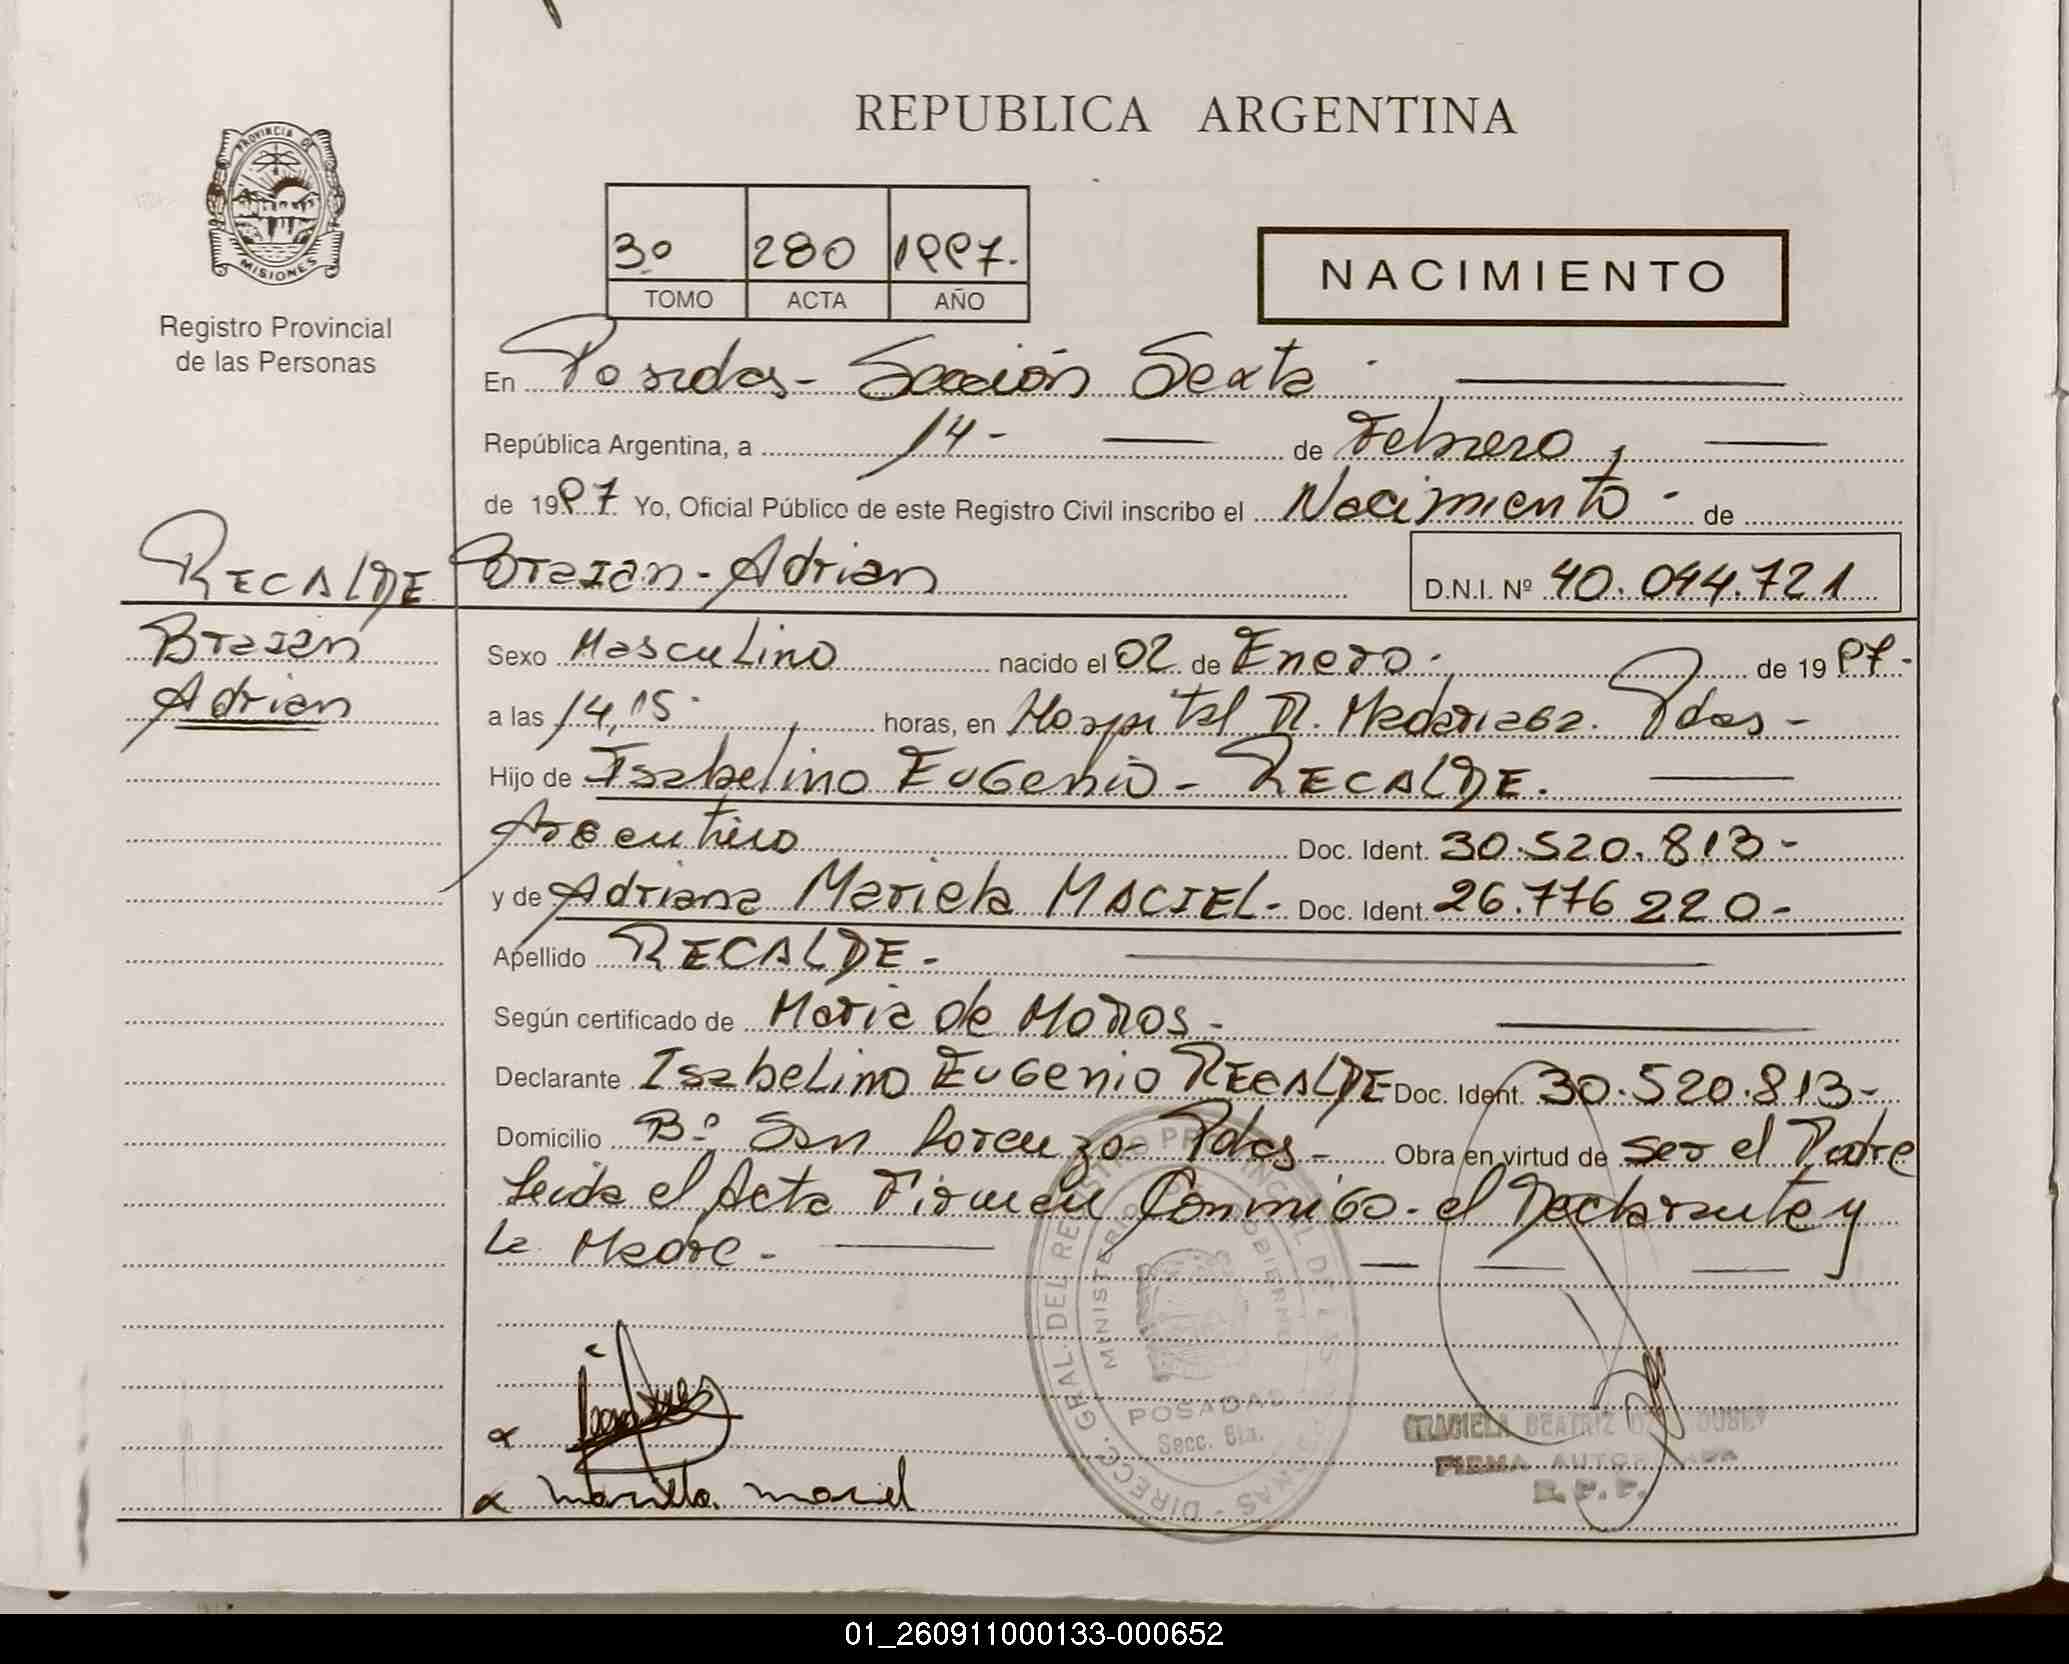 REPUBLICA ARGENTINA
PROVINCIA DE
MISIONES
Registro Provincial
de las Personas
3º 280 1997.
TOMO ACTA AÑO
NACIMIENTO
En Posadas - Sección Sexta
República Argentina, a 14 - de Febrero,
de 1997 Yo, Oficial Público de este Registro Civil inscribo el Nacimiento - de
RECALDE Braian - Adrian D.N.I. Nº 40.044.721
Braian
Adrian
Sexo Masculino nacido el 02 de Enero. de 1997.
a las 14,15 horas, en Hospital R. Madariaga. Pdas -
Hijo de Isabelino Eugenio - RECALDE.
Argentino Doc. Ident. 30.520.813 -
y de Adriana Mariela MACIEL - Doc. Ident. 26.776 220 -
Apellido RECALDE. -
Según certificado de Maria de
Declarante Isabelino Eugenio RECALDE Doc. Ident. 30.520.813 -
Domicilio Bº San Lorenzo - Pdas - Obra en virtud de ser el Padre
Leida el Acta Firman Conmigo - el Declarante y
La Madre -
DIRECC. GRAL. DEL REGISTRO PROVINCIAL DE LAS PERSONAS
MINISTERIO DE GOBIERNO
POSADAS
Secc. 6ta.
GRACIELA BEATRIZ
FIRMA AUTORIZADA
R. P. P.
Mariela maciel
01_260911000133-000652